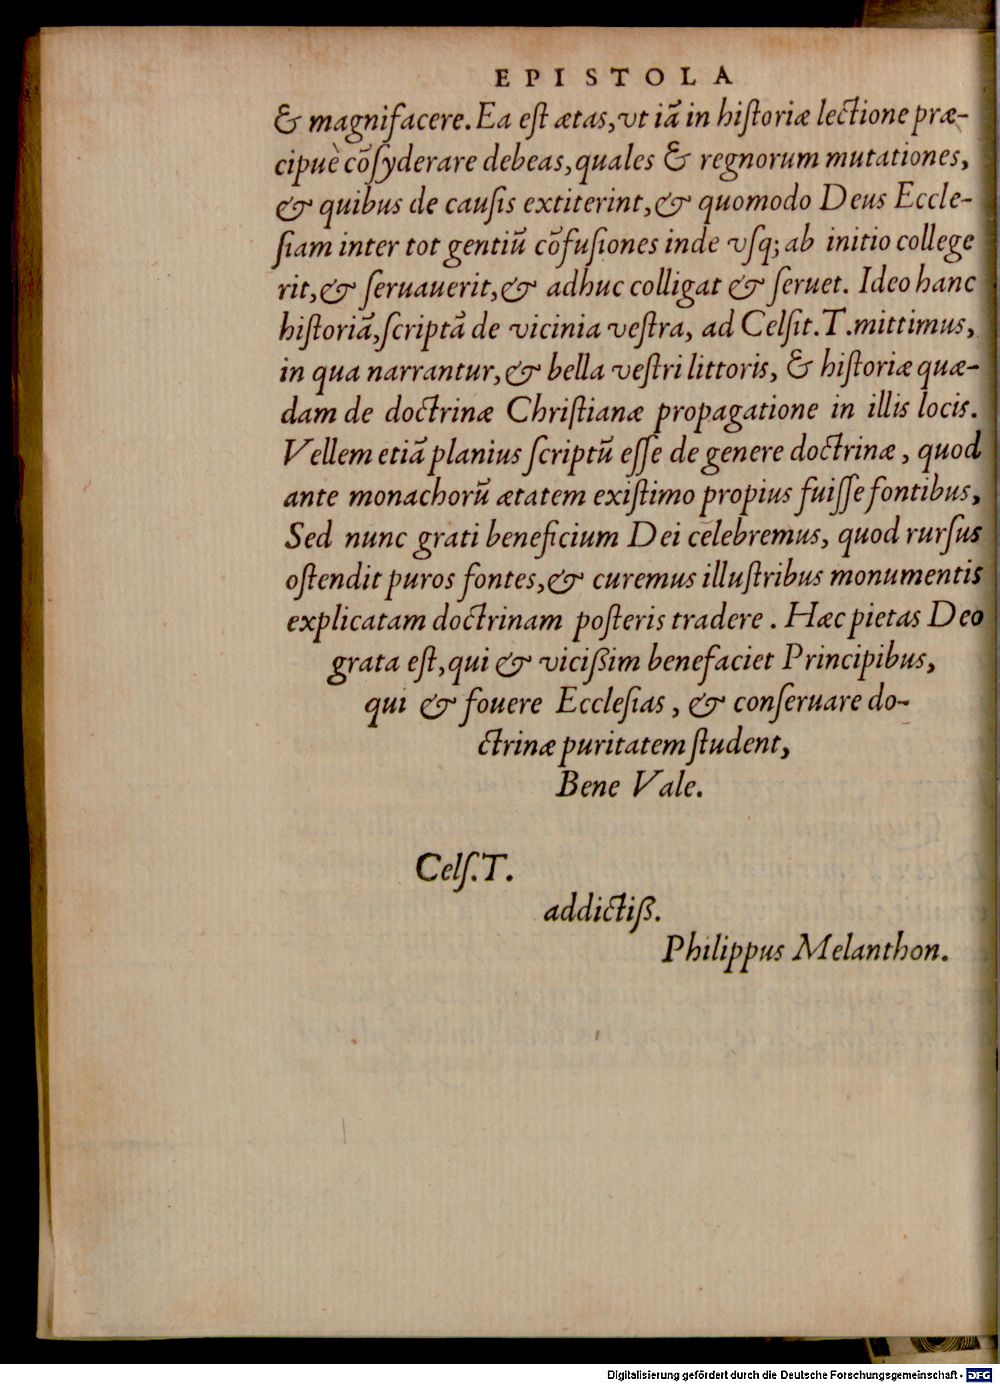 EPISTOLA
& magnifacere. Ea eſt ætas, vt iã in hiſtoriæ lectione præ-
cipuè cõſyderare debeas, quales & regnorum mutationes,
& quibus de cauſis extiterint, & quomodo Deus Eccle-
ſiam inter tot gentiũ cõfuſiones inde vſq; ab initio college
rit, & ſeruauerit, & adhuc colligat & ſeruet. Ideo hanc
hiſtoriã, ſcriptã de vicinia veſtra, ad Celſit. T. mittimus,
in qua narrantur, & bella veſtri littoris, & hiſtoriæ quæ-
dam de doctrinæ Chriſtianæ propagatione in illis locis.
Vellem etiã planius ſcriptũ eſſe de genere doctrinæ, quod
ante monachorũ ætatem exiſtimo propius fuiſſe fontibus,
Sed nunc grati beneficium Dei celebremus, quod rurſus
oſtendit puros fontes, & curemus illuſtribus monumentis
explicatam doctrinam poſteris tradere. Hæc pietas Deo
grata eſt, qui & viciſsim benefaciet Principibus,
qui & fouere Eccleſias, & conſeruare do-
ctrinæ puritatem ſtudent,
Bene Vale.
Celſ. T.
addictiß.
Philippus Melanthon.
Digitalisierung gefördert durch die Deutsche Forschungsgemeinschaft - DFG